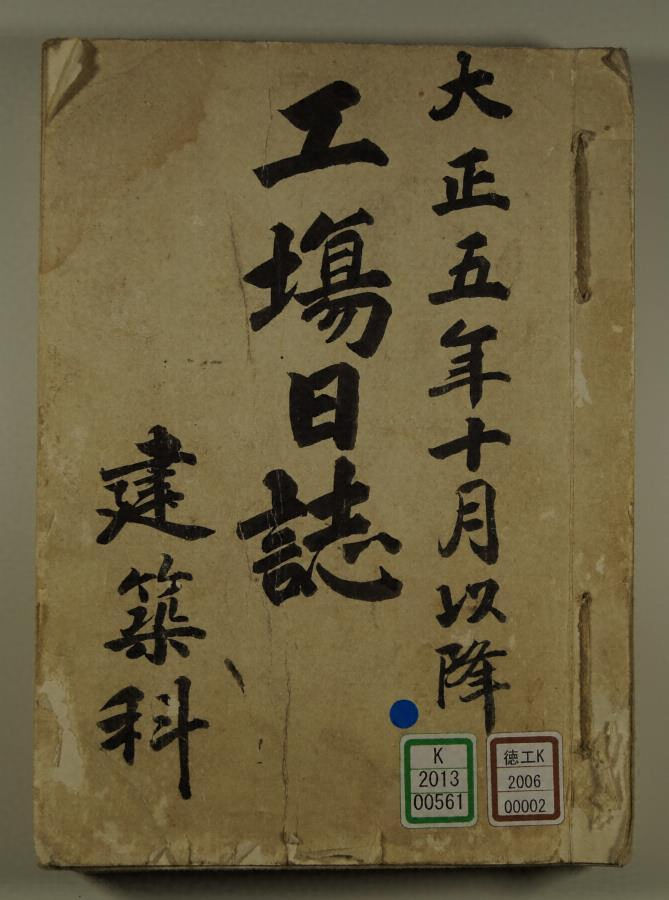 大正五年十月以降
工塲日誌
建築科
K
2013
00561
徳工K
2006
00002